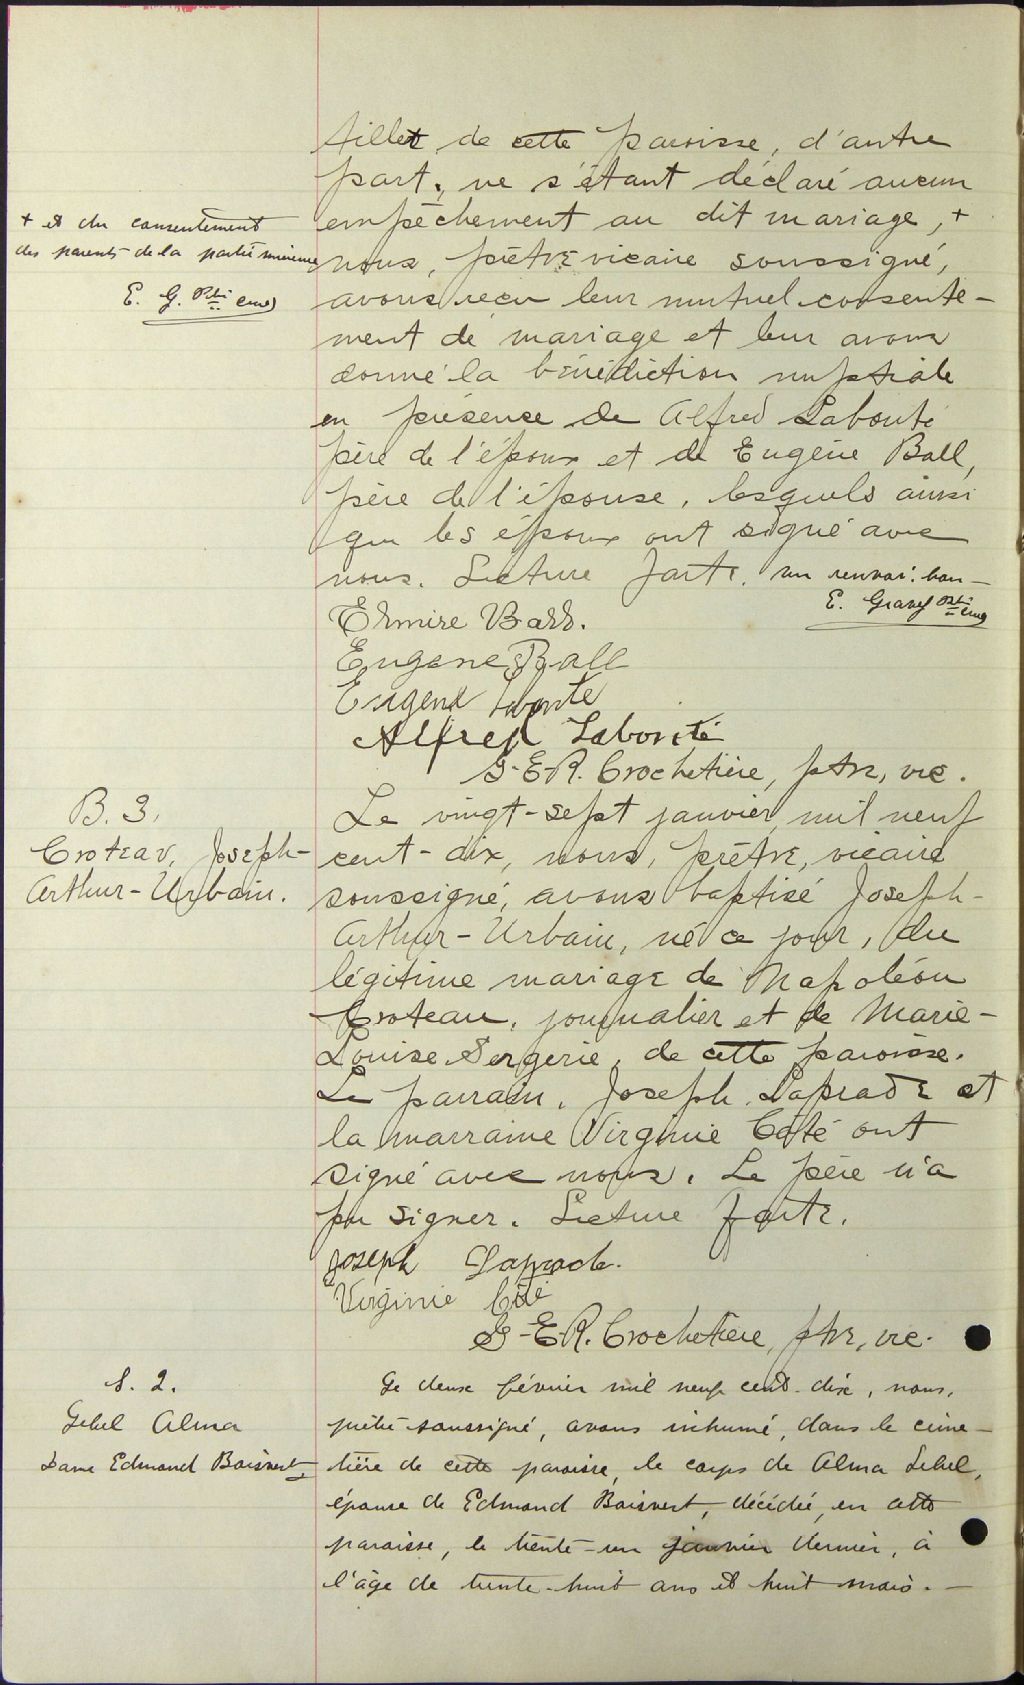 fillet de cette paroisse, d'autre
part, ne s'étant déclaré aucun
empêchement au dit mariage, +
+ et du consentement
des parents de la partie mineure
E. G. Ptre curé
nous, prêtre vicaire soussigné,
avons reçu leur mutuel consente-
ment de mariage et leur avons
donné la bénédiction nuptiale
en présence de Alfred Labonté
père de l'époux et de Eugène Ball,
père de l'épouse, lesquels ainsi
que les époux ont signé avec
nous. Lecture faite. un renvoi bon -
E. Gravel Ptre curé
Elmire Ball.
Eugene Ball
Eugene Labonte
Alfred Labonté
G-E-R. Crochetière, ptre, vic.
B. 3.
Croteau, Joseph-
Arthur-Urbain.
Le vingt-sept janvier, mil neuf
cent-dix, nous, prêtre, vicaire
soussigné, avons baptisé Joseph-
Arthur-Urbain, né ce jour, du
légitime mariage de Napoléon
Croteau, journalier et de Marie-
Louise Sergerie, de cette paroisse.
Le parrain, Joseph Laprade et
la marraine Virginie Côté ont
signé avec nous. Le père n'a
pu signer. Lecture faite.
Joseph Laprade.
Virginie Côté
G-E-R. Crochetière, ptre, vic.
S. 2.
Lebel Alma
Dame Edmond Boisvert
Le deux février mil neuf cent-dix, nous,
prêtre soussigné, avons inhumé, dans le cime-
tière de cette paroisse, le corps de Alma Lebel,
épouse de Edmond Boisvert, décédée, en cette
paroisse, le trente-un janvier dernier, à
l'âge de trente-huit ans et huit mois. -